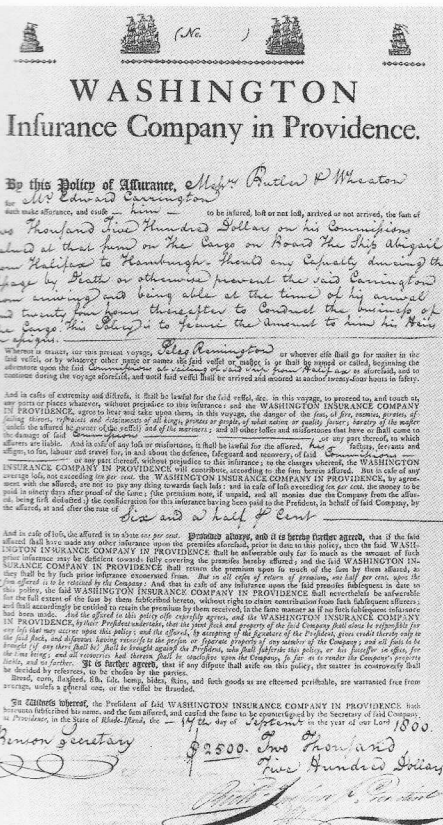 (No. )
WASHINGTON
Insurance Company in Providence.
By this Policy of Assurance, Messrs Butler & Wheaton
for Mr Edward Carrington
such make assurance, and cause — him — to be insured, lost or not lost, arrived or not arrived, the sum of
Two Thousand Five Hundred Dollars on his Commissions
valued at that sum on The Cargo on Board The Ship Abigail
from Halifax to Hamburgh – Should any Casualty during the
passage by Death or otherwise prevent the said Carrington
from arriving and being able at the time of his arrival
and twenty four hours thereafter to Conduct the business of
the Cargo, this Policy is to secure the Amount to him his Heirs
or assigns.
Whereof is master, for this present voyage, Peleg Remington or whoever else shall go for master in the
said vessel, or by whatever other name or names the said vessel or master is or shall be named or called, beginning the
adventure upon the said Commissions at sailing of said Ship from Halifax as aforesaid, and to
continue during the voyage aforesaid, and until said vessel shall be arrived and moored at anchor twenty-four hours in safety.
And in cases of extremity and distress, it shall be lawful for the said vessel, &c. in this voyage, to proceed to, and touch at,
any ports or places whatever, without prejudice to this insurance: and the WASHINGTON INSURANCE COMPANY
IN PROVIDENCE, agree to bear and take upon them, in this voyage, the danger of the seas, of fire, enemies, pirates, of
assailing thieves, restraints and detainments of all kings, princes or people, of what nature or quality soever; barratry of the master
(unless the assured be owner of the vessel) and of the mariners; and all other losses and misfortunes that have or shall come to
the damage of said Commissions or any part thereof, to which
assurers are liable. And in case of any loss or misfortune, it shall be lawful for the assured, his factors, servants and
assigns, to sue, labour and travel for, in and about the defence, safeguard and recovery, of said Commissions
or any part thereof, without prejudice to this insurance; to the charges whereof, the WASHINGTON
INSURANCE COMPANY IN PROVIDENCE will contribute, according to the sum herein assured. But in case of any
average loss, not exceeding five per cent. the WASHINGTON INSURANCE COMPANY IN PROVIDENCE, by agree-
ment with the assured, are not to pay any thing towards such loss: and in case of loss exceeding five per cent. the money to be
paid in ninety days after proof of the same; (the premium note, if unpaid, and all monies due the Company from the assur-
ed, being first deducted;) the consideration for this insurance having been paid to the President, in behalf of said Company, by
the assured, at and after the rate of
Six and a half ⅌ Cent
And in case of loss, the assured is to abate two per cent. Provided always, and it is hereby further agreed, that if the said
assured shall have made any other insurance upon the premises aforesaid, prior in date to this policy, then the said WASH-
INGTON INSURANCE COMPANY IN PROVIDENCE shall be answerable only for so much as the amount of such
prior insurance may be deficient towards fully covering the premises hereby assured; and the said WASHINGTON IN-
SURANCE COMPANY IN PROVIDENCE shall return the premium upon so much of the sum by them assured, as
they shall be by such prior insurance exonerated from. But in all cases of return of premium, one half per cent. upon the
sum assured is to be retained by the Company: And that in case of any insurance upon the said premises subsequent in date to
this policy, the said WASHINGTON INSURANCE COMPANY IN PROVIDENCE shall nevertheless be answerable
for the full extent of the sum by them subscribed hereto, without right to claim contribution from such subsequent assurers;
and shall accordingly be entitled to retain the premium by them received, in the same manner as if no such subsequent insurance
had been made. And the assured in this policy also expressly agrees, and the WASHINGTON INSURANCE COMPANY
IN PROVIDENCE, by their President undertake, that the joint stock and property of the said Company shall alone be responsible for
any loss that may accrue upon this policy; and the assured, by accepting of the signature of the President, gives credit thereby only to
the said stock, and disavows having recourse to the person or separate property of any member of the Company: and all suits to be
brought (if any there shall be) shall be brought against the President, who shall subscribe this policy, or his successor in office, for
the time being; and all recoveries had thereon shall be conclusive upon the Company, so far as to render the Company's property
liable, and no further. It is further agreed, that if any dispute shall arise on this policy, the matter in controversy shall
be decided by referees, to be chosen by the parties.
Bread, corn, flaxseed, fish, salt, hemp, hides, skins, and such goods as are esteemed perishable, are warranted free from
average, unless a general one, or the vessel be stranded.
In Witness whereof, the President of said WASHINGTON INSURANCE COMPANY IN PROVIDENCE hath
hereunto subscribed his name, and the sum assured, and caused the same to be countersigned by the Secretary of said Company,
at Providence, in the State of Rhode-Island, the – 17th day of Septemr in the year of our Lord 1800.
Benson Secretary
$2500. Two Thousand
Five Hundred Dollars
President